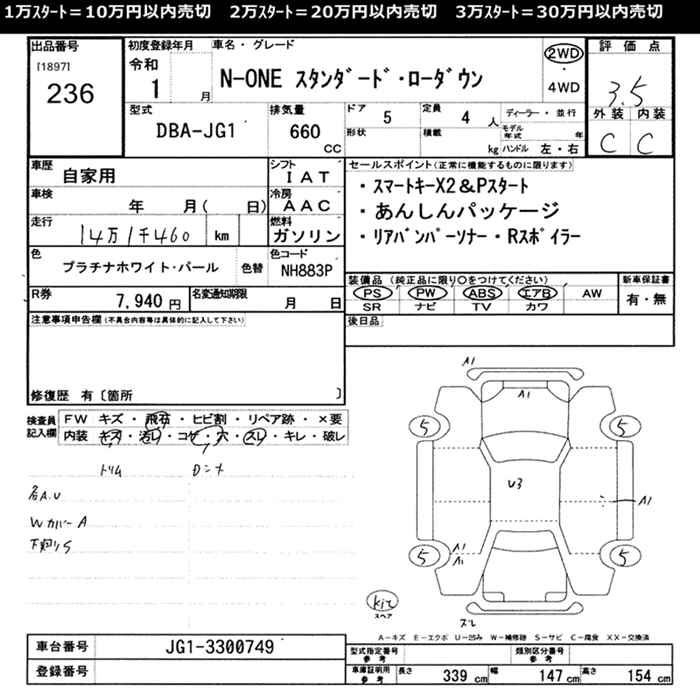 1万スタート=10万円以内売切 2万スタート=20万円以内売切 3万スタート=30万円以内売切
出品番号 初度登録年月 車名・グレード 評価点
[1897] 令和 2WD
236 1 月 N-ONE スタンダード・ローダウン ・ 4WD 3.5
型式 排気量 ドア 5 定員 4 人 ディーラー・並行 外装 内装
DBA-JG1 660 CC 形状 積載 kg モデル年式 年 ハンドル 左・右 C C
車歴 自家用 シフト IAT セールスポイント(正常に機能するものに限ります)
車検 年 月( 日) 冷房 AAC ・スマートキーX2&Pスタート
走行 14万1千460 km 燃料 ガソリン ・あんしんパッケージ
・リアバンパーソナー・Rスポイラー
色 プラチナホワイト・パール 色替 色コード NH883P
装備品(純正品に限り○をつけてください) 新車保証書
R券 7,940円 名変通知期限 月 日 PS PW ABS エアB AW 有・無
SR ナビ TV カワ
注意事項申告欄(不具合内容等は具体的に記入して下さい) 後日品
修復歴 有〔箇所 〕
検査員記入欄 FW キズ・飛石・ヒビ割・リペア跡・×要
内装 キズ・汚レ・コゲ・穴・スレ・キレ・破レ
トリム
各A.U
WカバーA
下廻りS
A1
A1
5 5
U3
A1
5 A1 5
A1
スペア
スレ
A-キズ E-エクボ U-凹み W-補修跡 S-サビ C-腐食 XX-交換済
車台番号 JG1-3300749
型式指定番号 参考 類別区分番号 参考
登録番号
車庫証明用 参考 長さ 339 cm 幅 147 cm 高さ 154 cm